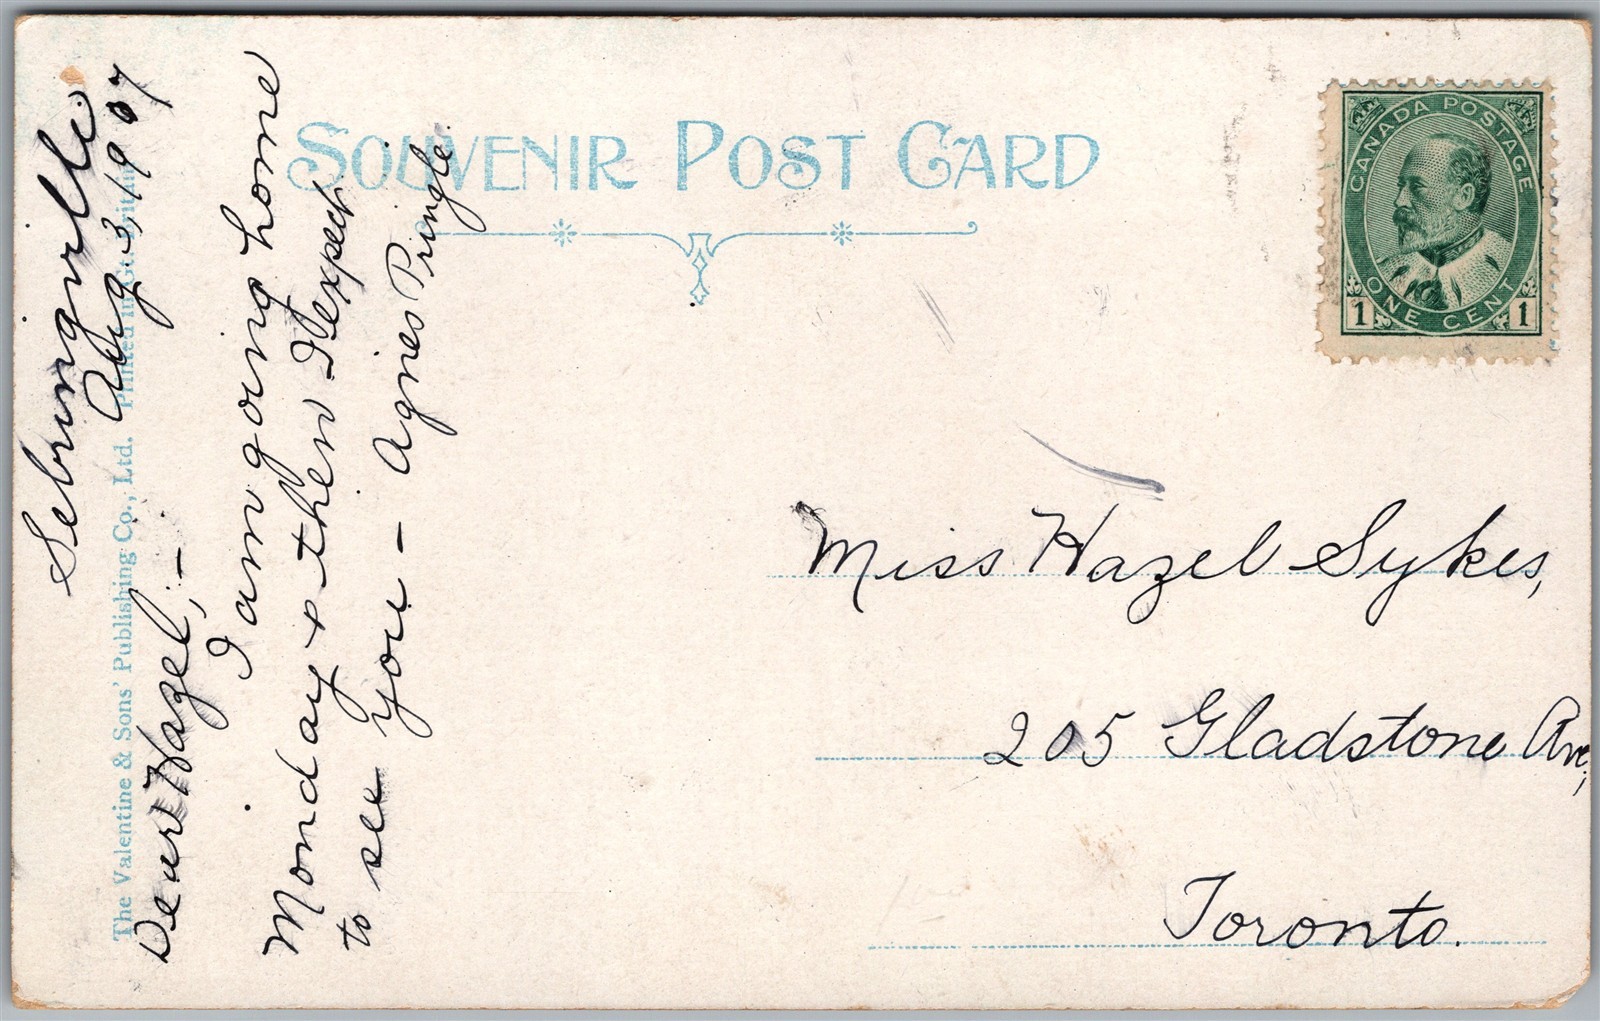 Sebringville
Aug. 3, 1907
Dear Hazel,–
I am going home
Monday & then I expect
to see you – Agnes Pringle.
The Valentine & Sons' Publishing Co., Ltd. Printed in Gt. Britain
SOUVENIR POST CARD
CANADA POSTAGE
1 ONE CENT 1
Miss Hazel Sykes,
205 Gladstone Ave,
Toronto.